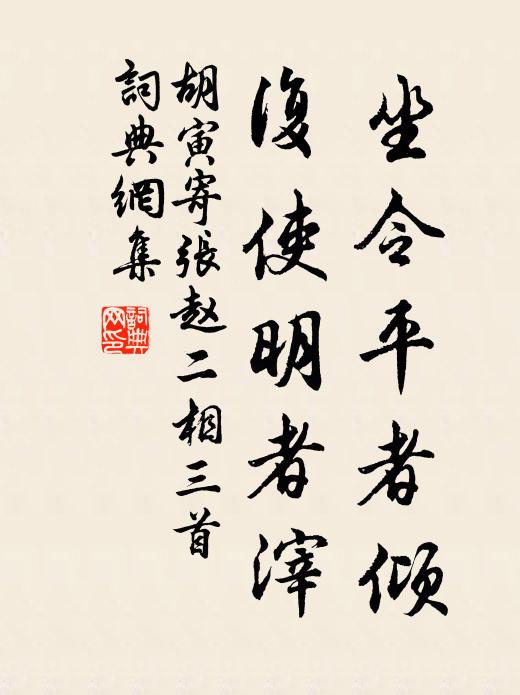 坐令平者倾
復使明者滓
胡寅寄張赵二相三首
詞典網集
詞典
网印